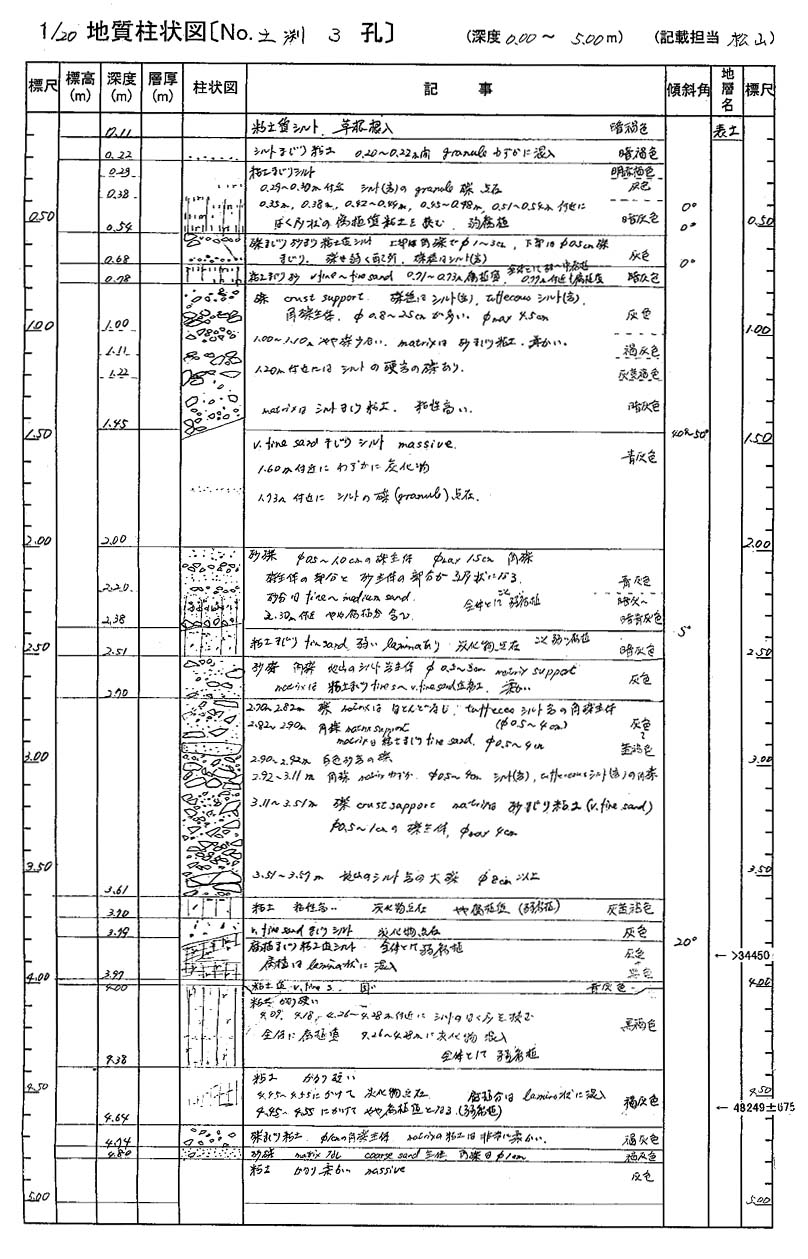 1/20 地質柱状図〔No. 土渕 3 孔〕 (深度 0.00 ~ 5.00 m) (記載担当 松山)
標尺 標高(m) 深度(m) 層厚(m) 柱状図 記事 傾斜角 地層名 標尺
0.11 粘土質シルト、草根混入 暗褐色 表土
0.22 シルトまじり粘土 0.20~0.22m間 granule わずかに混入 暗褐色
0.29 粘土まじりシルト 明茶褐色
0.29~0.30m付近 シルト(岩)の granule 礫 点在 灰色
0.38 0.35m, 0.38m, 0.42~0.44m, 0.45~0.48m, 0.51~0.54m 付近に 0°
0.50 暗灰色 0.50
0.54 0°
礫まじり砂まじり粘土質シルト
0.68 灰色 0°
0.78 粘土まじり砂 v.fine~fine sand 0.71~0.73m 腐植質 暗灰色
礫 crust support. 礫種はシルト(岩), tuffeceous シルト(岩),
角礫主体, φ0.8~2.5cm が多い φmax 4.5cm 灰色
1.00 1.00 1.00
1.00~1.10m やや礫少ない. matrixは 砂まじり粘土. 柔かい.
1.11 褐灰色
1.22 1.20m付近には シルトの硬岩の礫あり. 灰黄褐色
matrixはシルトまじり粘土. 粘性高い. 暗灰色
1.45
1.50 40~50° 1.50
v.fine sand まじり シルト massive. 青灰色
1.60m付近に わずかに 炭化物
1.73m 付近に シルトの礫 (granule) 点在.
2.00 2.00 2.00
砂礫 φ0.5~1.0cmの礫主体 φmax 1.5cm 角礫
礫主体の部分と 砂主体の部分が互層状になる. 青灰色
2.20 砂分は fine~medium sand. 全体として 弱腐植 暗灰~
2.38 2.30m付近 やや腐植分含む 暗青灰色
5°
2.50 2.51 粘土まじり fine sand. 弱い laminaあり 炭化物点在 ごく弱い腐植 暗灰色 2.50
砂礫 角礫 地山のシルト岩主体 φ0.5~3cm matrix support
matrixは 粘土まじり fine s~v.fine sand 灰色
2.70
2.70~2.82m 礫 matrixはほとんどなし, tuffeceo シルト岩の角礫主体
2.82~2.90m 角礫 matrix support (φ0.5~4cm) 灰色
matrixは粘土まじり fine sand. φ0.5~4cm 黄褐色
3.00 2.90~2.92m 白色砂岩の礫 3.00
2.92~3.11m 角礫 matrixわずか φ0.5~4cm シルト(岩), tuffeceous シルト(岩)の角礫
3.11~3.51m 礫 crust support matrixは 砂まじり粘土 (v.fine sand)
φ0.5~1cmの 礫主体, φmax 4cm
3.50 3.50
3.51~3.57m 地山のシルト岩の大礫 φ8cm 以上
3.61
3.70 粘土 粘性高い 炭化物点在 やや腐植質 (弱腐植) 灰黄褐色
3.79 v.fine sand まじりシルト 炭化物点在 灰色
腐植まじり 粘土質シルト 全体として弱腐植 灰色 20° ← >34450
腐植は lamina状に 混入 黒色
4.00 3.97 4.00
4.00 粘土質 v.fine s. 固い 青灰色
粘土 かなり硬い
4.09, 4.18, 4.26~4.28m付近に シルトのはく層を挟む 黒褐色
全体に腐植質 4.26~4.28mに炭化物 混入
4.38 全体として 弱腐植
粘土 かなり硬い
4.50 4.45~4.55にかけて 炭化物点在. 腐植分は lamina状に混入 4.50
4.45~4.55 にかけて やや腐植質となる(弱腐植) 褐灰色 ← 48249±675
4.64
4.74 礫まじり粘土. φ1cmの角礫主体 matrixの粘土は非常に柔かい. 褐灰色
4.80 砂礫 matrix なし coarse sand 主体 角礫は φ1cm 褐灰色
粘土 かなり柔かい massive 灰色
5.00 5.00